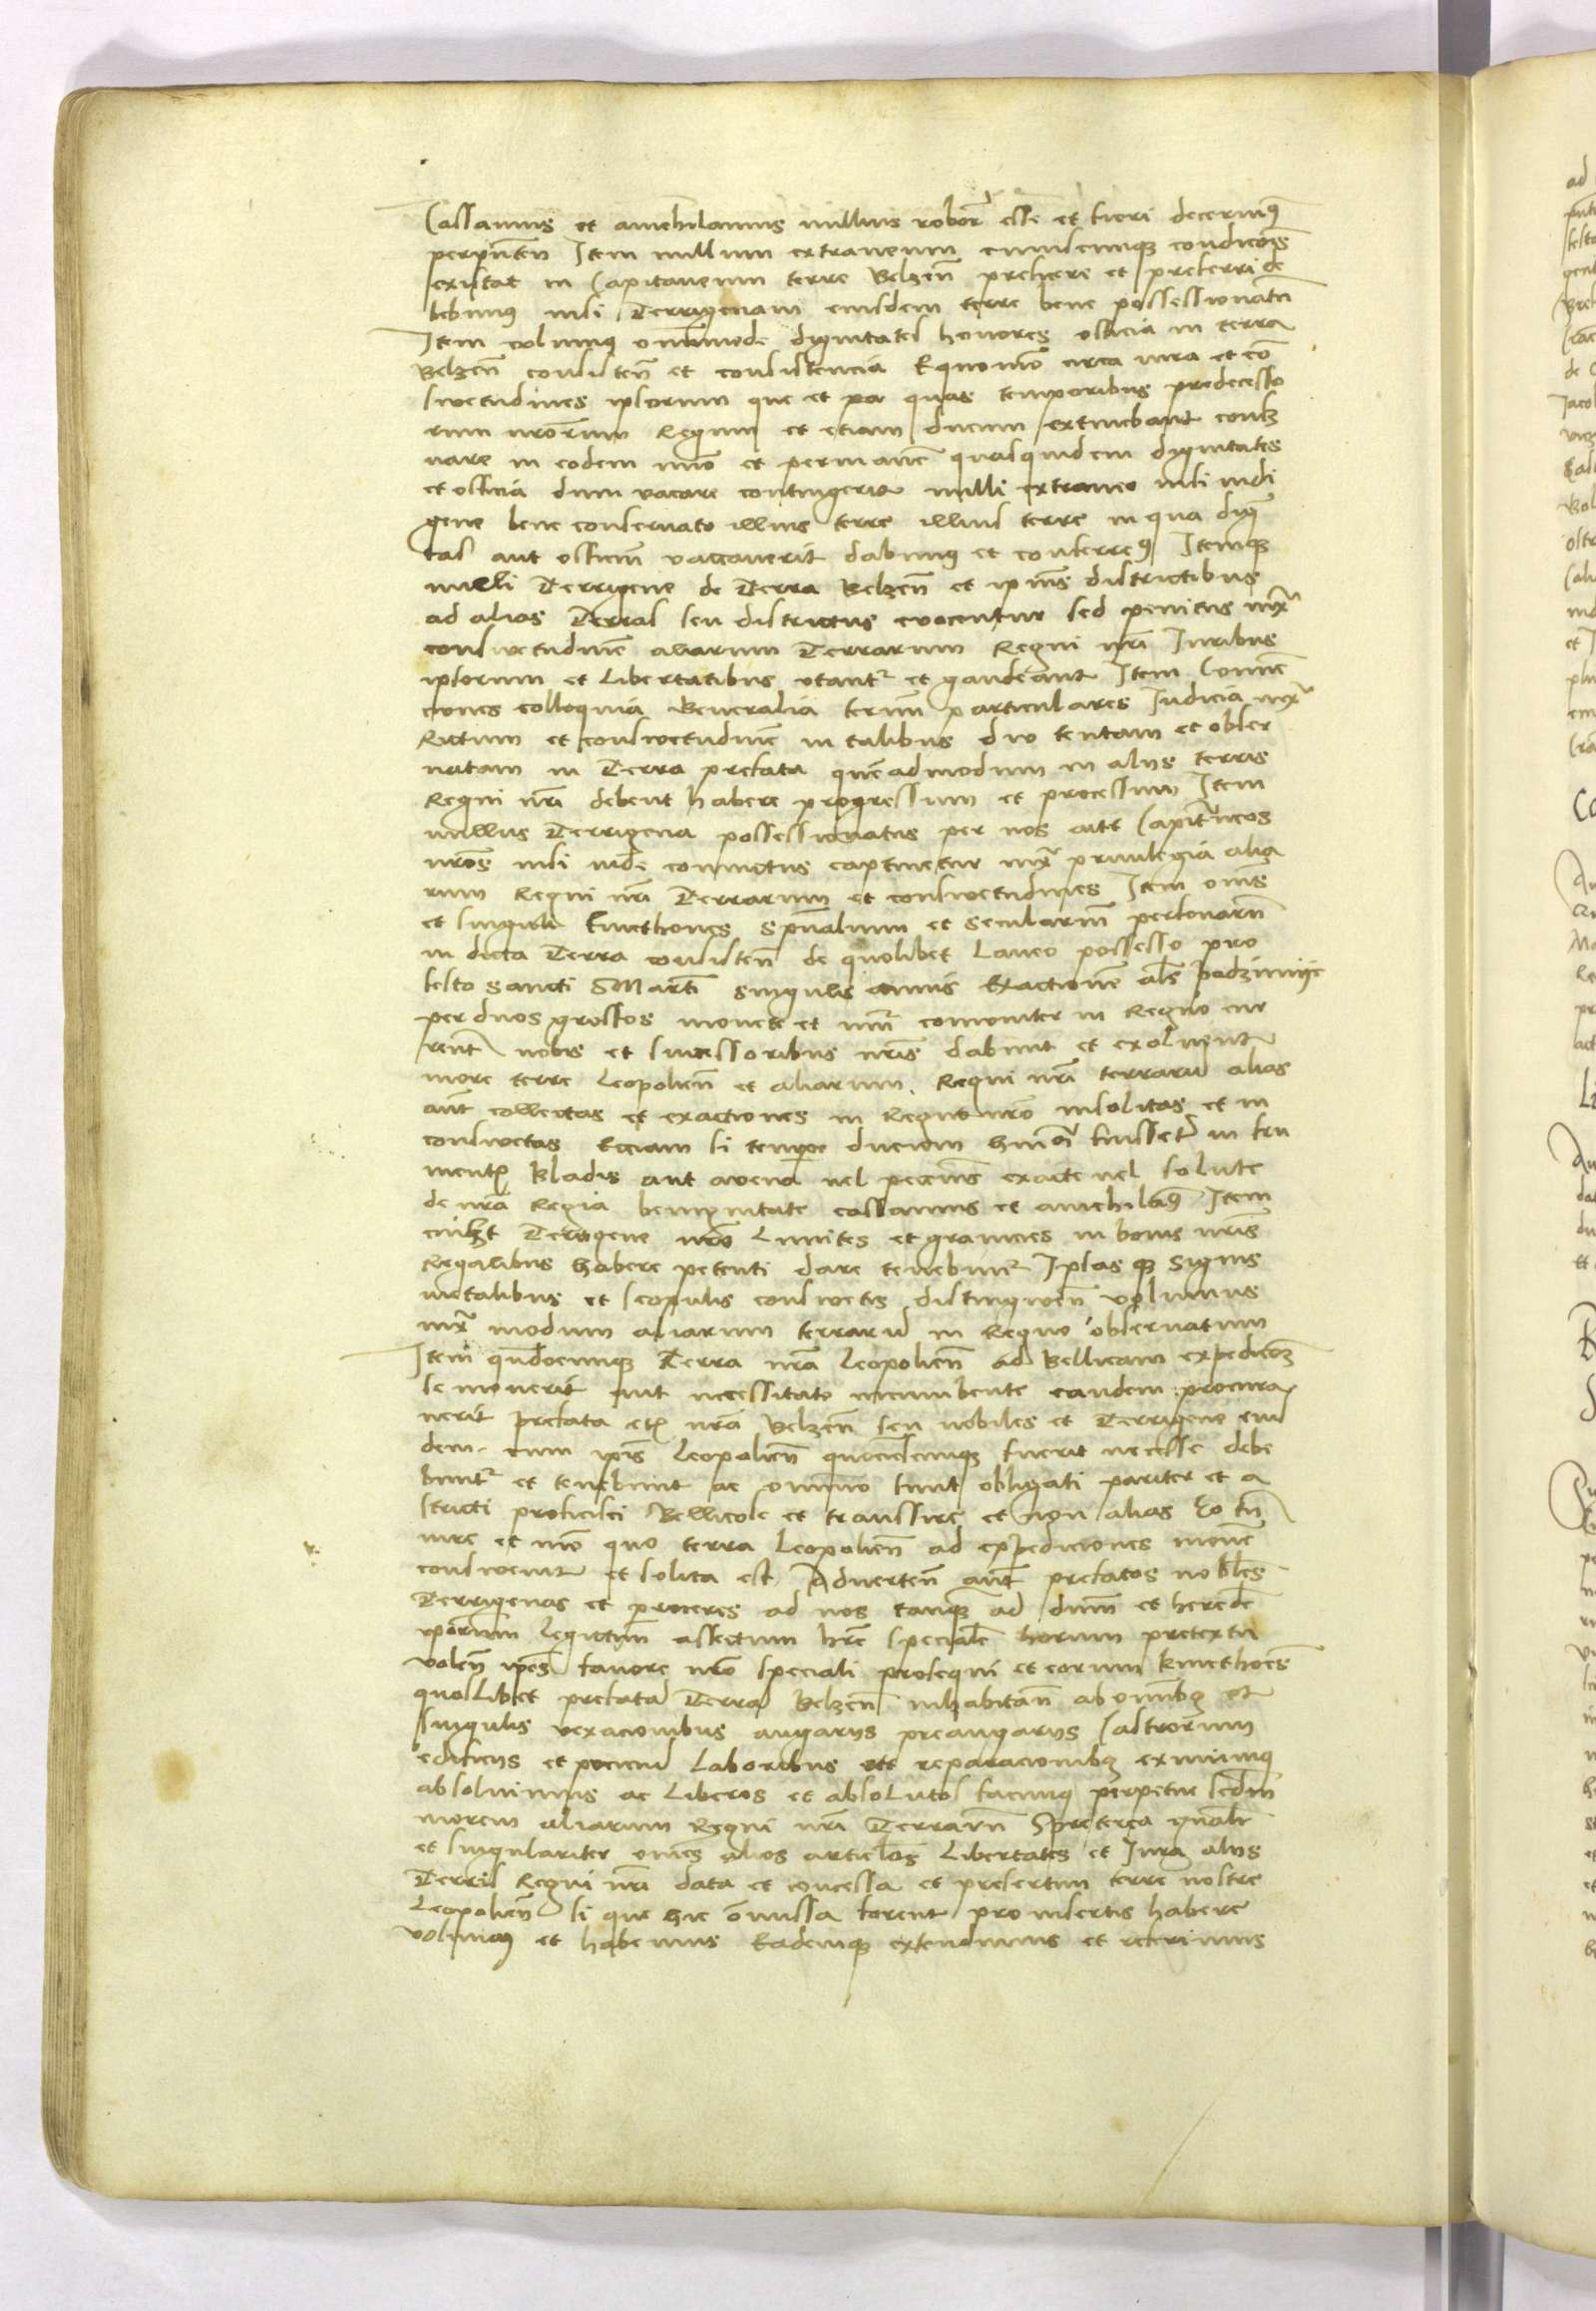 Cassamus et annihilamus nullius robor esse et fieri decernimus
per pnten Item nullum extraneum cuiuscumque condicois
existat in Capitaneum terre Belzen preficere et preferri de
bebimus nisi Terrigenam eiusdem terre bene possessionatu
Item volumus omnimode dignitates honores officia in terra
Belzen consisten et consistencia Equonimo circa iura et con
swetudines ipsorum que et per quas temporibus predecesso
rum nrorum Regum et etiam ducum extniebant
nare in eodem mo et permane quasquidem dignitates
et officia dum vacare contingerit nulli extraneo nisi indi
gene bene conservato illius terre illius terre in qua digni
tas aut officium vaccaverit dabimus et conferremus Itemque
nulli Terrigene de Terra Belzen et ipius districtibus
ad alias Terras seu districtus evocentur sed penitus iuxta
conswetudine aliarum Terrarum Regni nri Iuribus
ipsorum et libertatibus utantur et gaudeant Item Conven
ciones colloquia Generalia termi particulares Iudicia iuxta
Ritum et conswetudine in talibus diu tentam et obser
vatam in Terra prefata quemadmodum in alys terris
Regni nri debent habere progressum et processum Item
nullus Terrigena possessionatus per nos aut Capitaneos
nros nisi iude convictus captivetur iuxta privilegia alia
rum Regni nri Terrarum et conswetudines Item omnis
et singuli kmethones spualium et secularium personarum
in dicta Terra consisten de quolibet Laneo possesso pro
festo Sancti Martini singulis annis Exactionem als podzimnye
per duos grossos monete et numi comuniter in Regno cur
rent nobis et successoribus nris dabunt et exolvent
more terre Leopolien et aliarum Regni nri terraru alias
aut collectas et exactiones in Regno nro insolitas et in
conswetas Ecciam si tempore ducum fuisset in fru
mentis bladis aut avena vel pecuniis exacte vel solute
de nra Regia benignitate cassamus et annihilamus Item
cuilibet Terrigene nro Limites et granicies in bonis nris
Regalibus habere petenti dare tenebimur Ipsas que signis
metalibus et scopulis conswetis distinguen volumus
iuxta modum aliarum terraru in Regno observatum
Item qundocumque Terra nra Leopolien ad bellicam expedicom
se moverit aut necessitate incumbente eandem procura
verit prefata etc nra Belzen seu nobiles et Terrigene eius
dem cum ipis Leopolien quociescumque fuerit necesse debe
buntur et tenebunt ac omnino sunt obligati pariter et a
stricti proficisci Bellicose et transsire et non alias Eo tn
iure et mo quo terra Leopolien ad expediciones move
conswevit et solita est Adverten aut prefatos nobiles
Terrigenas et proceres ad nos tanquam ad dnm et herede
ipsorum legittimum affectum hre speciale horum pretextu
volen ipos favore nro speciali prosequi et eorum kmethoes
quoslibet prefata Terra Belzen inhabitan ab omnibus et
singulis vexacionibus angarys preangarys Castrorum
edificys et laboribus ett reparacionibus eximimus
absolvimus ac Liberos et absolutos facimus perpetue secdm
morem aliarum Regni nri Terrarum Preterea gnalr
et singulariter omnes alios articulos Libertates et Iura alys
Terris Regni nri data et concessa et presertim terre nostre
Leopolien si que hic omissa forent pro insertis habere
volumus et habemus Eademque extendimus et referimus